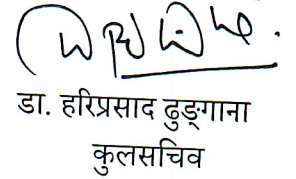 डा. हरिप्रसाद ढुङ्गाना
कुलसचिव